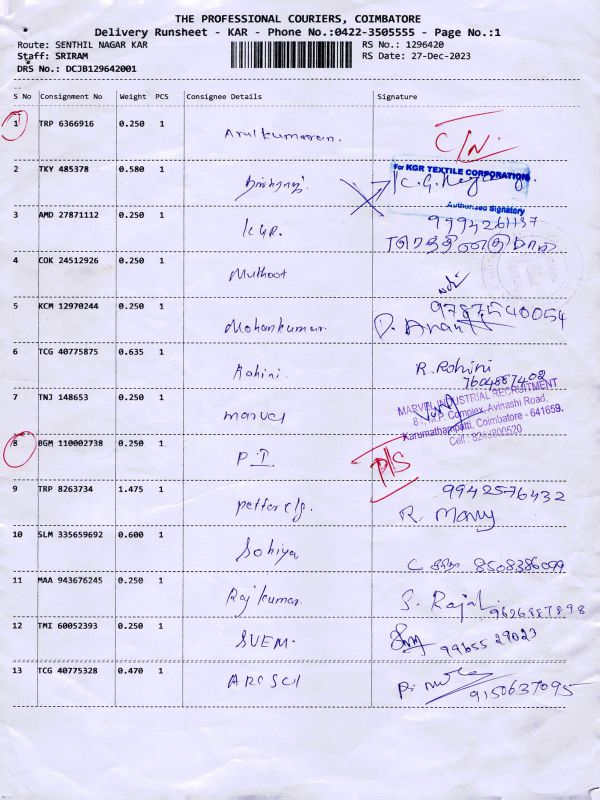 THE PROFESSIONAL COURIERS, COIMBATORE
Delivery Runsheet - KAR - Phone No.:0422-3505555 - Page No.:1
Route: SENTHIL NAGAR KAR RS No.: 1296420
Staff: SRIRAM RS Date: 27-Dec-2023
DRS No.: DCJB129642001
S No Consignment No Weight PCS Consignee Details Signature
1 TRP 6366916 0.250 1 Arulkumaran. C/N.
2 TKY 485378 0.580 1
For KGR TEXTILE CORPORATION
Authorised Signatory
3 AMD 27871112 0.250 1 KGR. 9994261137
4 COK 24512926 0.250 1 Muthoot
5 KCM 12970244 0.250 1 Mohankumar. 9787540054
D. Anan
6 TCG 40775875 0.635 1 Rohini. R. Rohini
7604887402
7 TNJ 148653 0.250 1 marvel
MARVEL INDUSTRIAL RECRUITMENT
M.P. Complex, Avinashi Road,
Karumathampatti, Coimbatore - 641659.
Cell : 8248800520
8 BGM 110002738 0.250 1 P.I. P/S
9 TRP 8263734 1.475 1 9942576432
R. Mary
10 SLM 335659692 0.600 1 Sobiya 8508386099
11 MAA 943676245 0.250 1 Rajkumar S. Rajal 9626887898
12 TMI 60052393 0.250 1 SVEM. 9965529023
13 TCG 40775328 0.470 1 9150637095